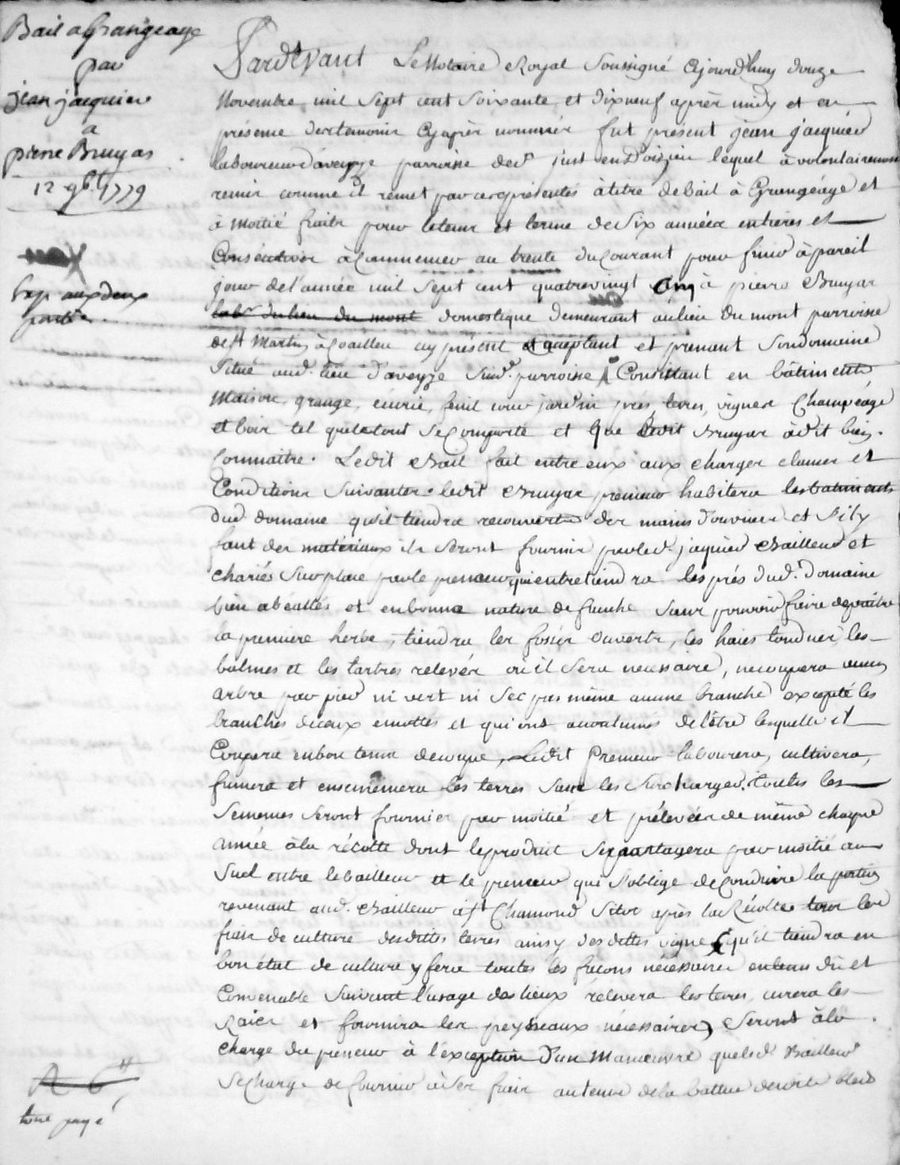 Bail a Grangeage
par
jean jacquier
a
pierre Bruyas
12 9bre 1779
Exp. aux deux
parties
Pardevant Le Notaire Royal Soussigné Cejourd'huy douze
Novembre mil Sept cent Soixante et dixneuf après midy et en
présence des temoins Cy après nommés fut présent jean jacquier
laboureur d'aveyze parroisse de st just en Doizieu lequel a volontairement
remis comme il remet par ces présentes à titre de Bail à Grangéage et
à Moitié fruits pour le tems et terme de Six années entieres et
Consécutives à Commencer au trente du Courant pour finir à pareil
jour de l'année mil Sept cent quatrevingt Cinq à pierre Bruyas
labr. du lieu du mont domestique demeurant au lieu Du mont parroisse
de St Martin à Coailleu cy présent et aceptant et prenant Son domaine
Situé aud. lieu d'aveyze Sud. parroisse Consistant en bâtiments
Maison, grange, ecurie, fenil cour jardin prés terres, vignes Champéage
et bois tel que le tout Se Comporte et que Ledit Bruyas à dit bien
Connaitre. Ledit Bail fait entre eux aux charges clauses et
Conditions Suivantes. ledit Bruyas preneur habitera les batiments
dud domaine qu'il tiendra recouverts des mains d'ouvrier et S'il y
faut des materiaux ils Seront fournis par led. jaquier Bailleur et
chariés Sur place par le preneur qui entretiendra les prés dud. Domaine
bien abéallés et en bonne nature de fauche Sans pouvoir faire depaitre
la premiere herbe, tiendra les fossés ouverts, les haies tondues, les
balmes et les tertres relevés où il Sera necessaire, ne coupera aucun
arbre par pied ni vert ni Sec pas même aucune branche excepté les
branches de ceux emottés et qui ont accoutumés de l'être lesquelles il
Coupera en bon tems de coupe, Ledit Preneur labourera, cultivera,
fumera et ensemencera les terres Sans les Surcharger. Toutes les
Semences Seront fournies par moitié et prélevées de même chaque
année à la récolte dont le produit Se partagera par moitié au
Suel entre le bailleur et le preneur qui S'oblige de Conduire la portion
revenant aud. Bailleur à St Chamond Sitot après la Récolte tous les
frais de culture desdittes terres ainsy des dettes vignes qu'il tiendra en
bon état de culture y fera toutes les façons nécessaires en tems dû et
Convenable Suivant l'usage des lieux relevera les terres, curera les
Raies et fournira les peysseaux nécessaires, Seront à la
Charge du preneur à l'exception d'un Manœuvre que led. Bailleur
Se Charge de fournir à Ses frais au tems de la batture desdits bleds
R 6tt
tout payé